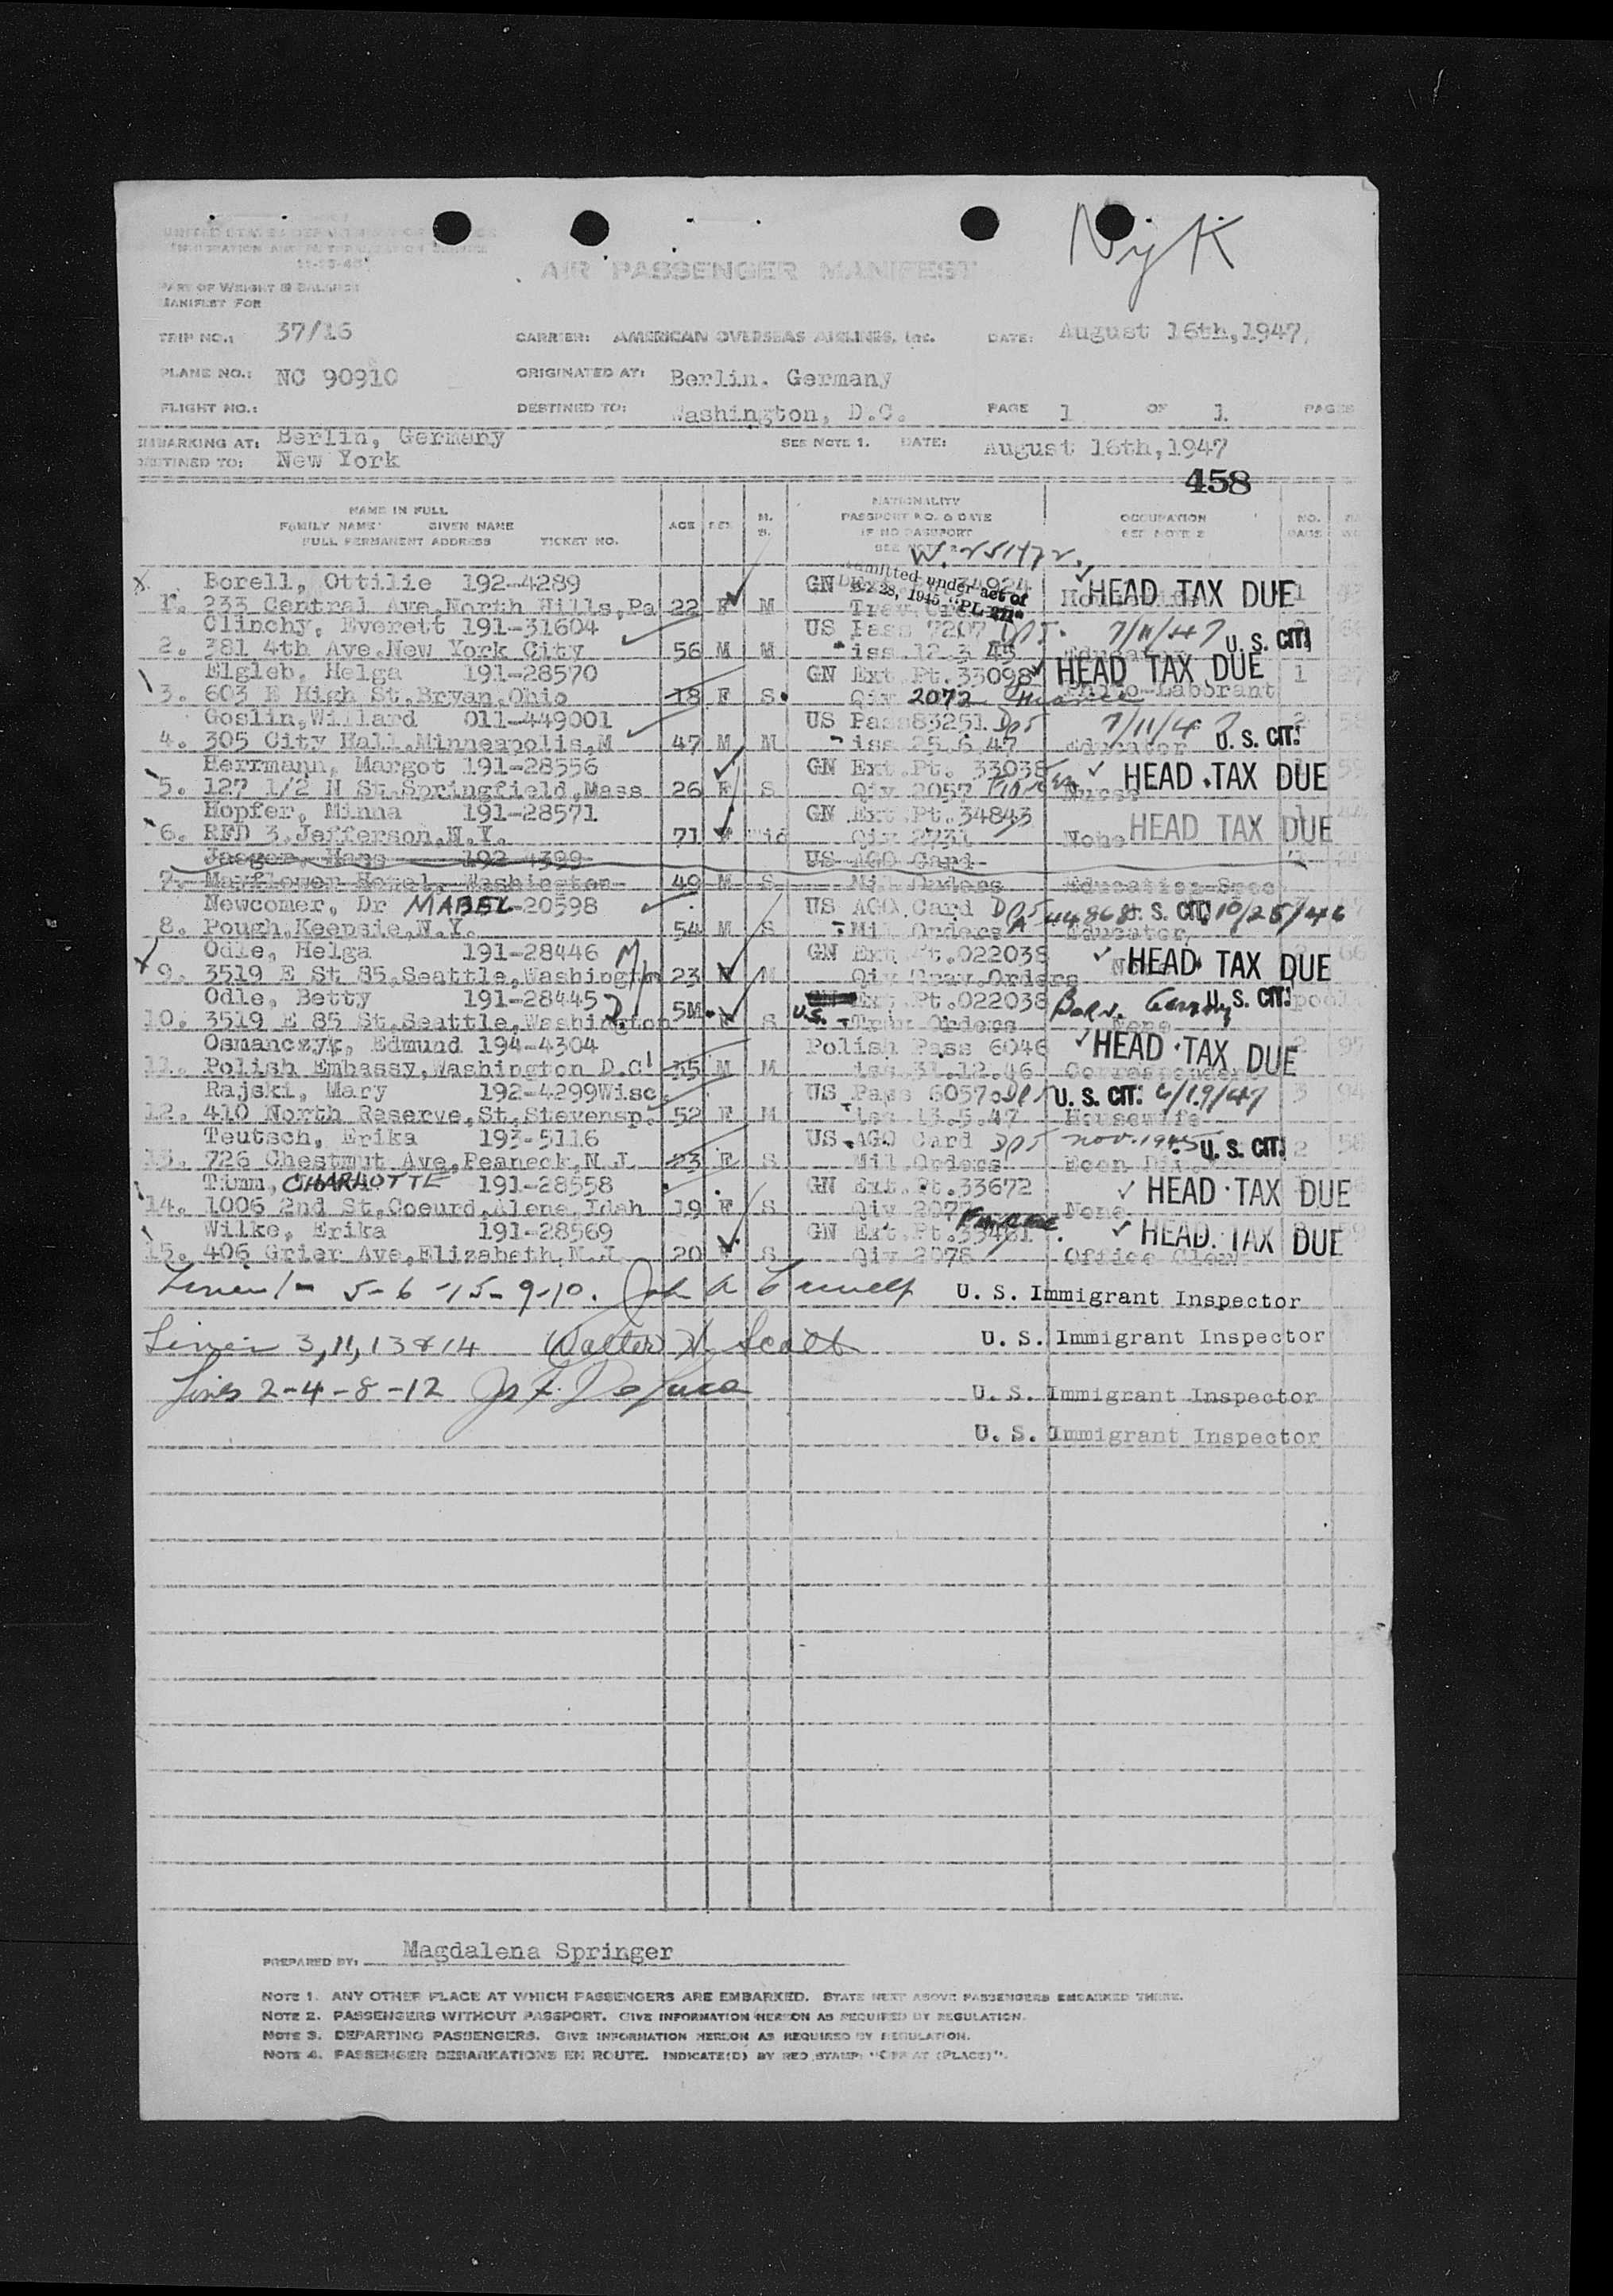 NyK
UNITED STATES DEPARTMENT OF JUSTICE
IMMIGRATION AND NATURALIZATION SERVICE
AIR PASSENGER MANIFEST
PART OF WEIGHT & BALANCE
MANIFEST FOR
TRIP NO.: 37/16 CARRIER: AMERICAN OVERSEAS AIRLINES, Inc. DATE: August 16th,1947,
PLANE NO.: NC 90910 ORIGINATED AT: Berlin. Germany
FLIGHT NO.: DESTINED TO: Washington, D.C. PAGE 1 OF 1 PAGES
EMBARKING AT: Berlin, Germany SEE NOTE 1. DATE: August 16th,1947
DESTINED TO: New York
458
NAME IN FULL
FAMILY NAME GIVEN NAME
FULL PERMANENT ADDRESS TICKET NO.
AGE SEX M. S.
NATIONALITY
PASSPORT NO. & DATE
IF NO PASSPORT
SEE NOTE 2
OCCUPATION
SEE NOTE 2
NO. BAGS
W. 251472
Borell, Ottilie 192-4289 GN 34924 HEAD TAX DUE 1
1. 233 Central Ave.North Hills,Pa 22 F M admitted under act of Dec. 28, 1945 "PL 271"
Clinchy, Everett 191-31604 US Pass 7207 7/11/47 U. S. CIT.
2. 381 4th Ave.New York City 56 M M iss 12.3 45 Educator
Elgleb, Helga 191-28570 GN Ext. Pt. 33098 HEAD TAX DUE 1
3. 603 E High St.Bryan,Ohio 18 F S. Qiv 2072 Fiancee Photo-Laborant
Goslin,Willard 011-449001 US Pass83251 7/11/47 2
4. 305 City Hall.Minneapolis,M 47 M M iss 25.6.47 Educator U. S. CIT.
Herrmann, Margot 191-28556 GN Ext.Pt. 33038 HEAD TAX DUE
5. 127 1/2 N St.Springfield,Mass 26 F S Qiv 2057 Nurse
Hopfer, Minna 191-28571 GN Ext.Pt.34843 HEAD TAX DUE 1
6. RFD 3.Jefferson.N.Y. 71 F Wid Qiv 2731 None
Jaeger, Hans 192-4399 US AGO Card
7. Mayflower Hotel, Washington 49 M S Mil Orders Education Spec
Newcomer, Dr MABEL -20598 US AGO Card U. S. CIT. 10/25/46
8. Pough.Keepsie,N.Y. 54 M S Mil Orders Educator
Odle, Helga 191-28446 GN Ext.Pt.022038 HEAD TAX DUE
9. 3519 E St 85,Seattle,Washington 23 F M Qiv Trav.Orders
Odle, Betty 191-28445 Ext.Pt.022038 Born. Germany U. S. CIT.
10. 3519 E 85 St.Seattle,Washington 5M. F S U.S. Trav Orders None
Osmanczyk, Edmund 194-4304 Polish Pass 6046 HEAD TAX DUE
11. Polish Embassy,Washington D.C 35 M M iss.31.12.46 Correspondent
Rajski, Mary 192-4299Wisc. US Pass 6057 U. S. CIT. 6/19/47 3
12. 410 North Reserve,St.Stevensp. 52 F M iss 13.5.47 Housewife
Teutsch, Erika 193-5116 US AGO Card Nov. 1945 U. S. CIT. 2
13. 726 Chestnut Ave,Peaneck,N.J. 23 F S Mil Orders Econ Div.
Timm, CHARLOTTE 191-28558 GN Ext.Pt.33672 HEAD TAX DUE
14. 1006 2nd St,Coeurd,Alene,Idah 19 F S None
Wilke, Erika 191-28569 GN Ext.Pt.33461 HEAD TAX DUE
15. 406 Grier Ave,Elizabeth,N.J. 20 F S Qiv 2078 Office Clerk
5-6-15-9-10. John A U. S. Immigrant Inspector
Lines 3,11,13 & 14 Walter N. Scott U. S. Immigrant Inspector
Lines 2-4-8-12 U. S. Immigrant Inspector
U. S. Immigrant Inspector
PREPARED BY: Magdalena Springer
NOTE 1. ANY OTHER PLACE AT WHICH PASSENGERS ARE EMBARKED. STATE NEXT ABOVE PASSENGERS EMBARKED THERE.
NOTE 2. PASSENGERS WITHOUT PASSPORT. GIVE INFORMATION HEREON AS REQUIRED BY REGULATION.
NOTE 3. DEPARTING PASSENGERS. GIVE INFORMATION HEREON AS REQUIRED BY REGULATION.
NOTE 4. PASSENGER DEBARKATIONS EN ROUTE. INDICATE(D) BY RED STAMP: "OFF AT (PLACE)".